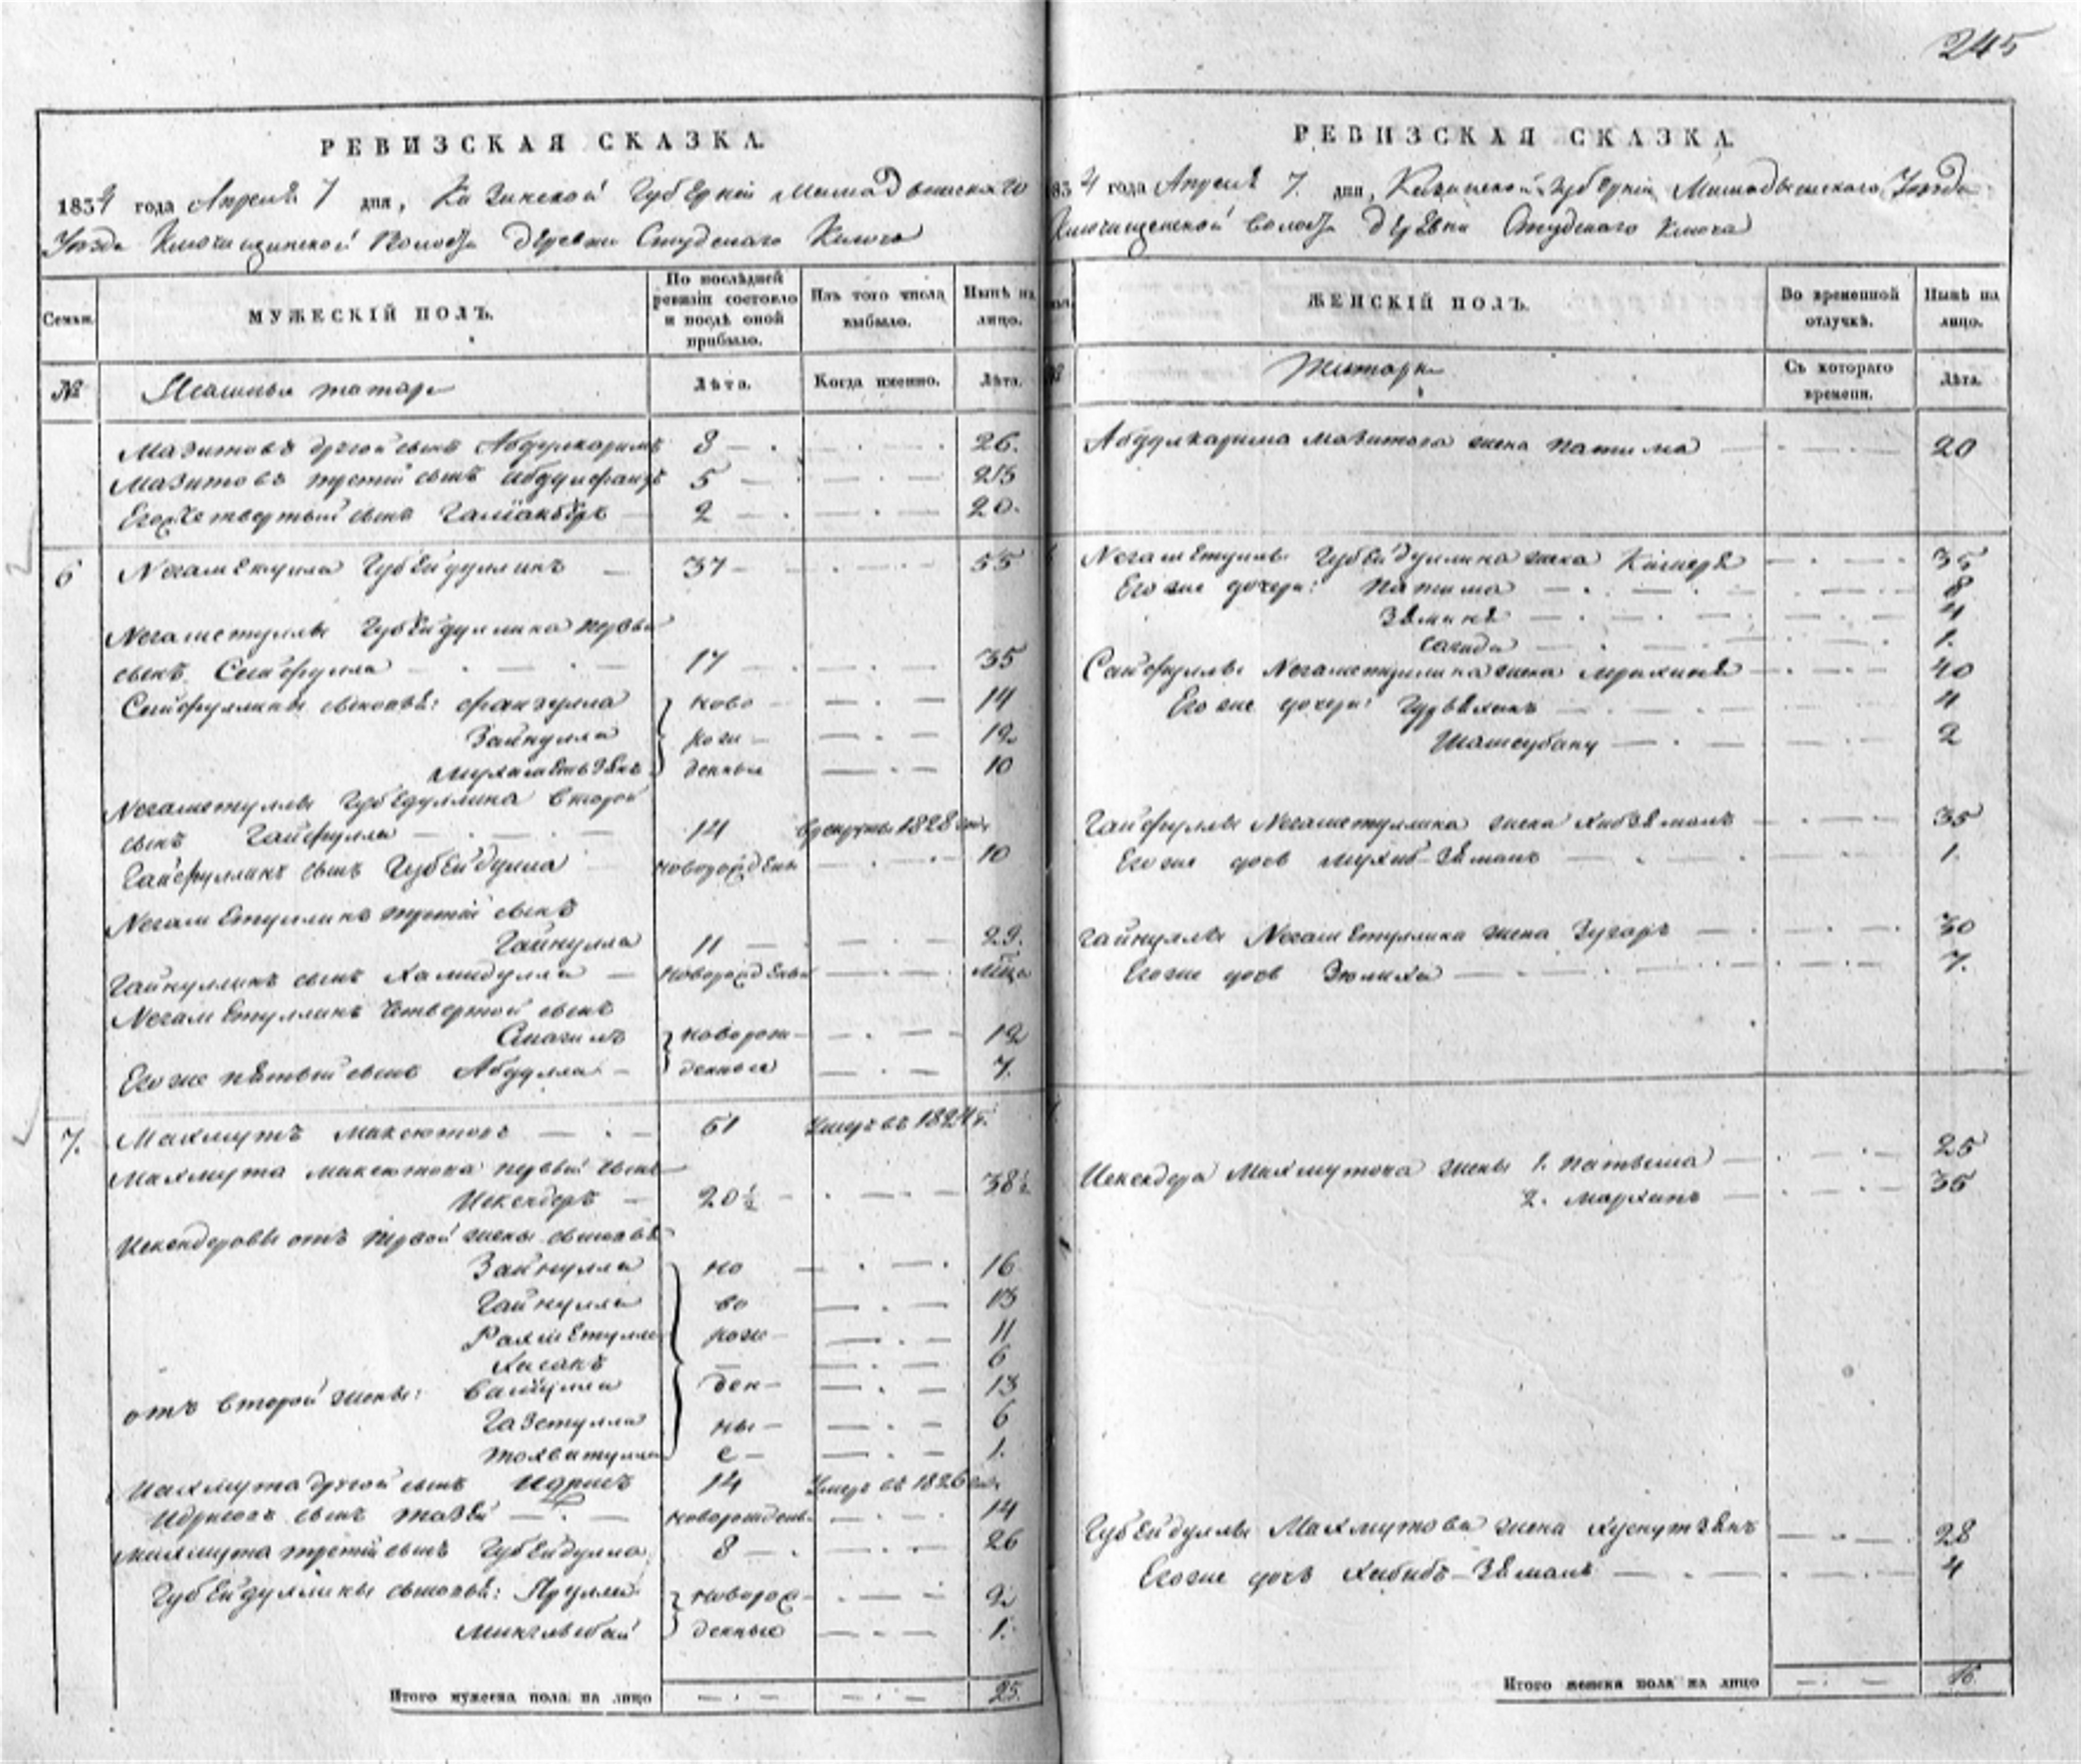 245
РЕВИЗСКАЯ СКАЗКА.
1834 года Апреля 7 дня, Казанской Губернии Мамадышскаго
Уезда Ключищинской Волости деревни Студенаго Ключа
Семьи.
МУЖЕСКІЙ ПОЛЪ.
По послѣдней ревизіи состояло и послѣ оной прибыло.
Изъ того числа выбыло.
Нынѣ на лицо.
№
Ясашныя татаре
Лѣта.
Когда именно.
Лѣта.
Мазитовъ другой сынъ Абдулкаримъ 8 26.
Мазитовъ третій сынъ 5 23
Его четвертый сынъ 2 20.
6 Негаметулла Губейдуллинъ 37 55
Негаметуллы Губейдуллина первый
сынъ Сайфулла 17 35
Сайфуллины сыновья: Фатхулла ново 14
Зайнулла рож 12
денныя 10
Негаметуллы Губейдуллина второй
сынъ Гайфулла 14 в рекруты 1828
Гайфуллинъ сынъ Губейдулла новорожден 10
Негаметуллинъ третій сынъ
Гайнулла 11 29.
Гайнуллинъ сынъ Хамидулла новорожден
Негаметуллинъ четвертой сынъ
новорож 12
Его же пятый сынъ Абдулла денные 7.
7. Махмутъ Максютовъ 51 Умеръ въ 1824 г.
Махмута Максютова первый сынъ
Искендеръ 20½ 38½
Искендеровы отъ первой жены сыновья
Зайнулла но 16
Гайнулла во 13
Рахметулла рож 11
Хасанъ 6
отъ второй жены: Валиулла ден 13
Газетулла ны 6
е 1.
Махмута другой сынъ Идрисъ 14 Умеръ въ 1826
Идрисовъ сынъ новорожден 14
Махмута третій сынъ Губейдулла 8 26
Губейдуллины сыновья: Ярулла новорож 9
Минглыбай денные 1.
Итого мужеска пола на лицо 25.
РЕВИЗСКАЯ СКАЗКА.
1834 года Апреля 7. дня, Казанской Губернии Мамадышскаго Уезда
Ключищенской волости деревни Студенаго Ключа
ЖЕНСКІЙ ПОЛЪ.
Во временной отлучкѣ.
Нынѣ на лицо.
Татарки
Съ котораго времени.
Лѣта.
Абдулкарима Мазитова жена Патима 20
Негаметуллы Губейдуллина жена 35
Его же дочери: Патима 8
4
Сагида 1.
Сайфуллы Негаметуллина жена 40
Его же дочери: 4
Шамсубану 2
Гайфуллы Негаметуллина жена 35
Его же дочь 1.
Гайнуллы Негаметуллина жена Зугора 30
Его же дочь Зюлиха 7.
Искендера Махмутова жены 1. 25
2. 35
Губейдуллы Махмутова жена 28
Его же дочь 4
Итого женска пола на лицо 16.